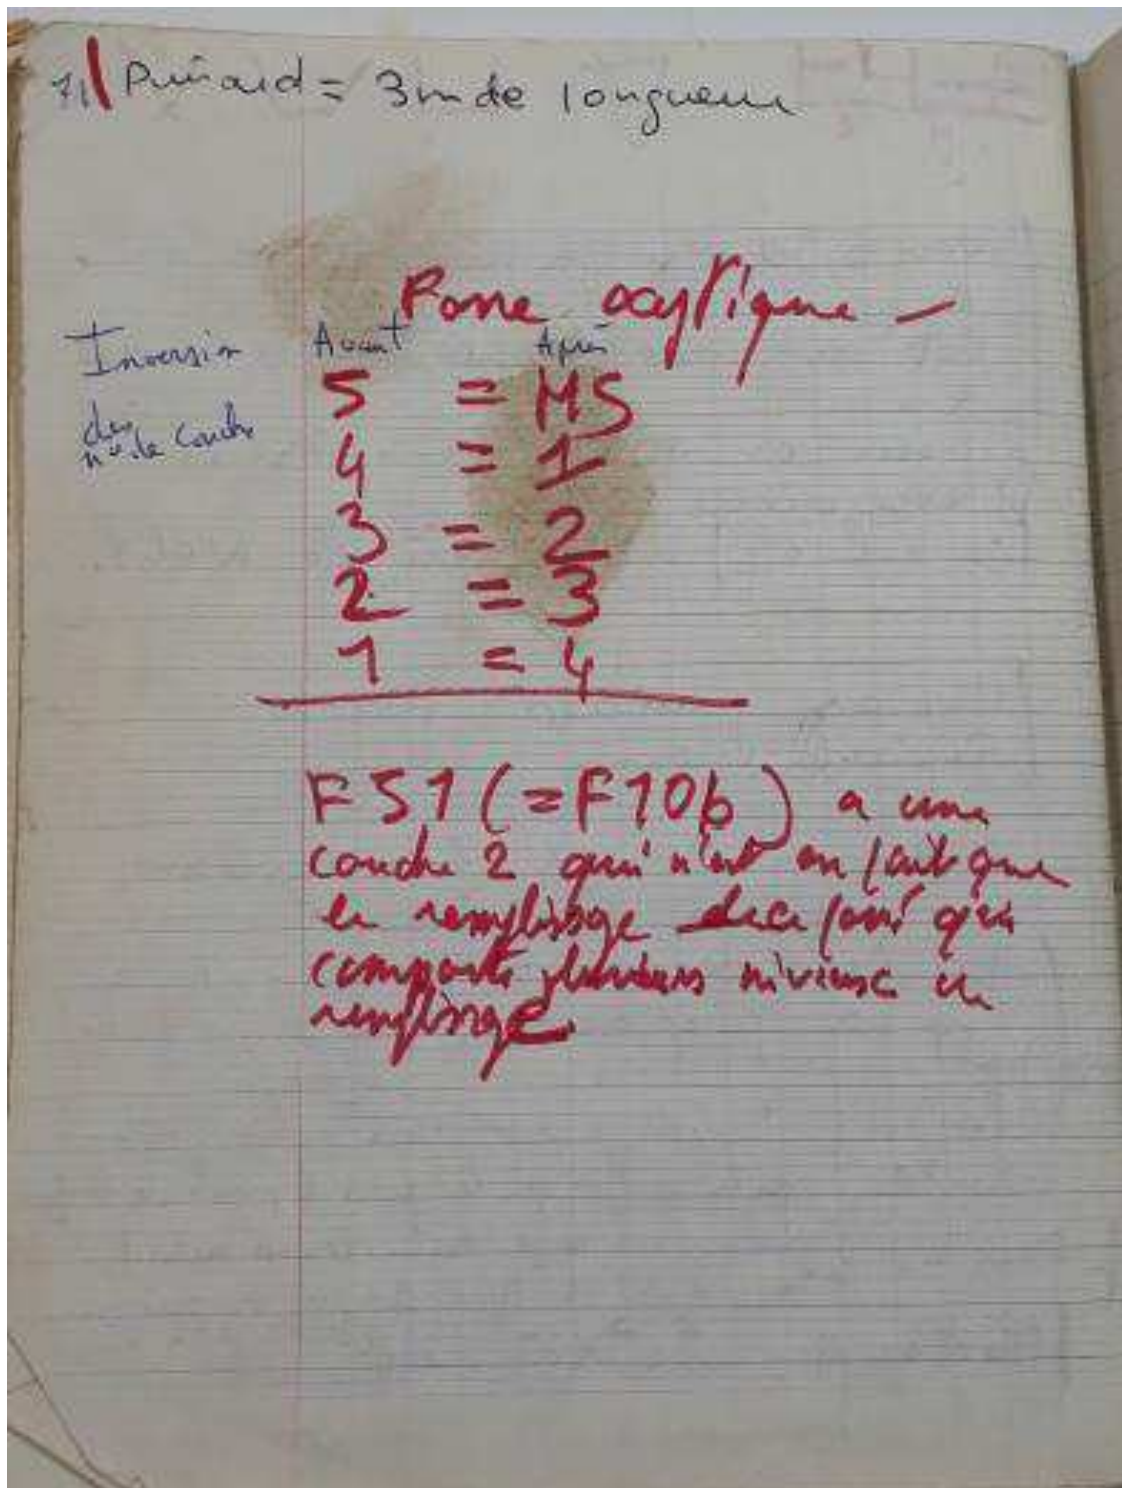 Puisard = 3m de longueur
Fosse
Inversion
des
n° de couche
Avant Après
5 = MS
4 = 1
3 = 2
2 = 3
1 = 4
F51 (=F10b) a une
couche 2 qui n'est en fait que
le remplissage qui
comporte plusieurs niveaux de
remplissage.